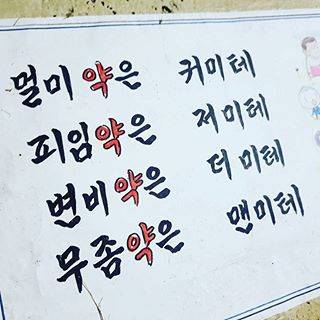 멀미 약은 귀미테
피임약은 저 미테
변비약은 더 미테
무좀약은 맨미테